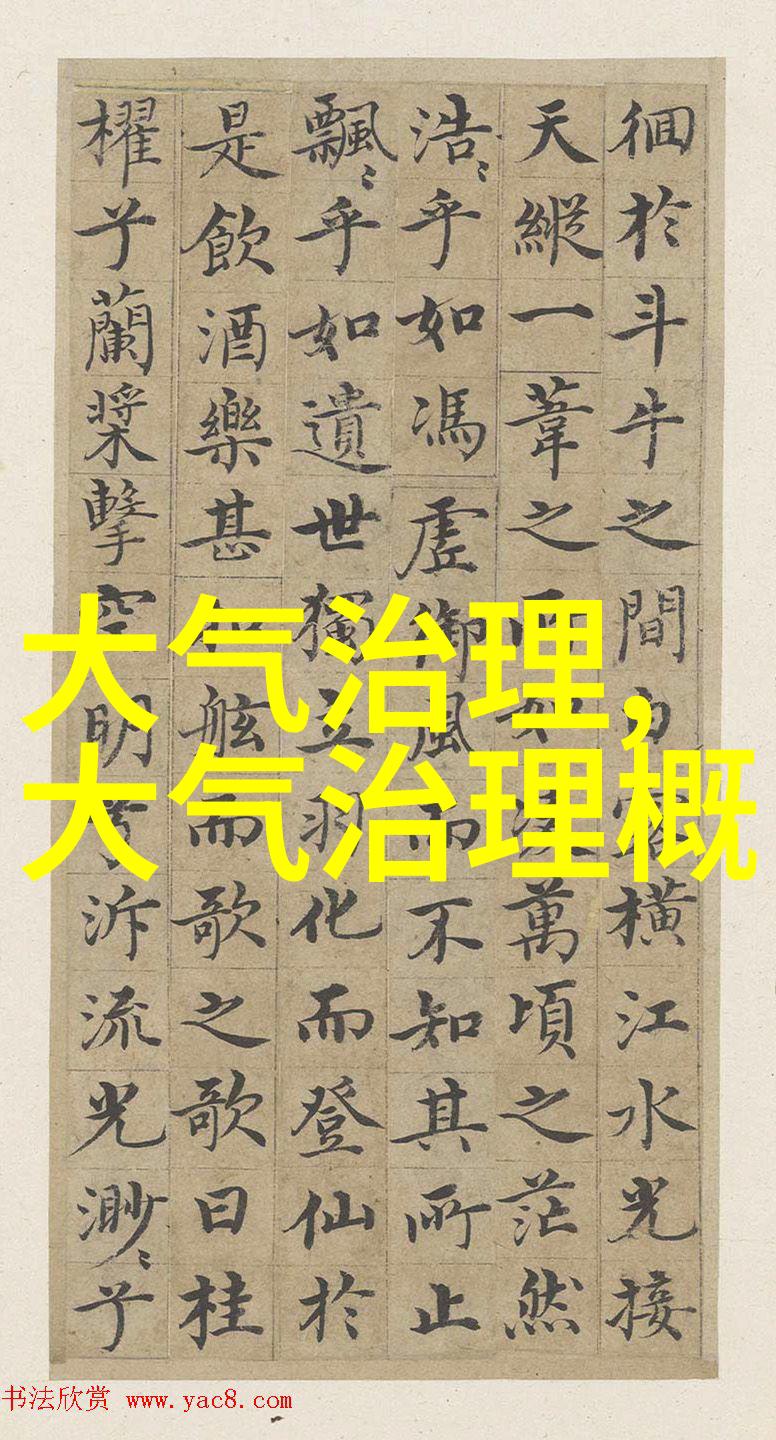 徊於斗牛之間白露橫江水光接
天縱一葦之所如凌萬頃之茫然
浩〻乎如馮虛御風而不知其所止
飄〻乎如遺世獨立羽化而登仙於
是飲酒樂甚扣舷而歌之歌曰桂
櫂兮蘭槳擊空明兮泝流光渺〻兮
大气治理,
大气治理概
书法欣赏 www.yac8.com